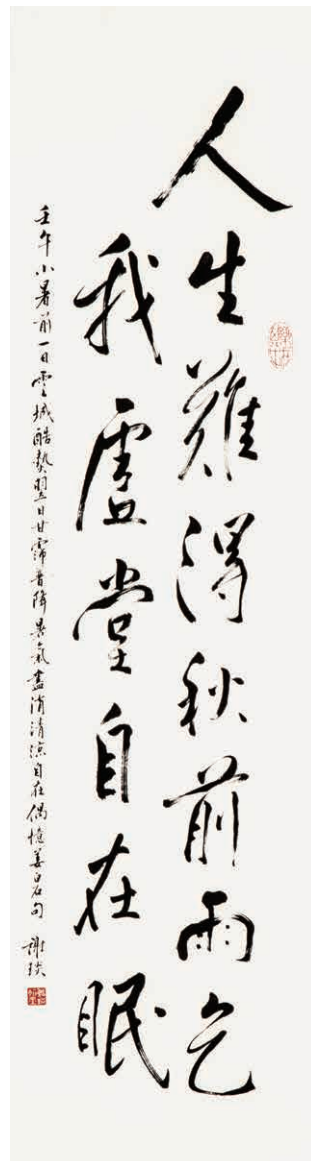 人生難得秋前雨乞
我虛堂自在眠
壬午小暑前一日雲城酷熱翌日甘霈普降暑氣盡消清涼自在偶憶姜白石句 謝琰